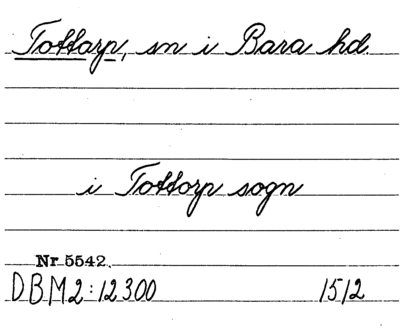 Tottarp, sn i Bara hd.
i Tottorp sogn
Nr 5542.
DBM2:12300 1512